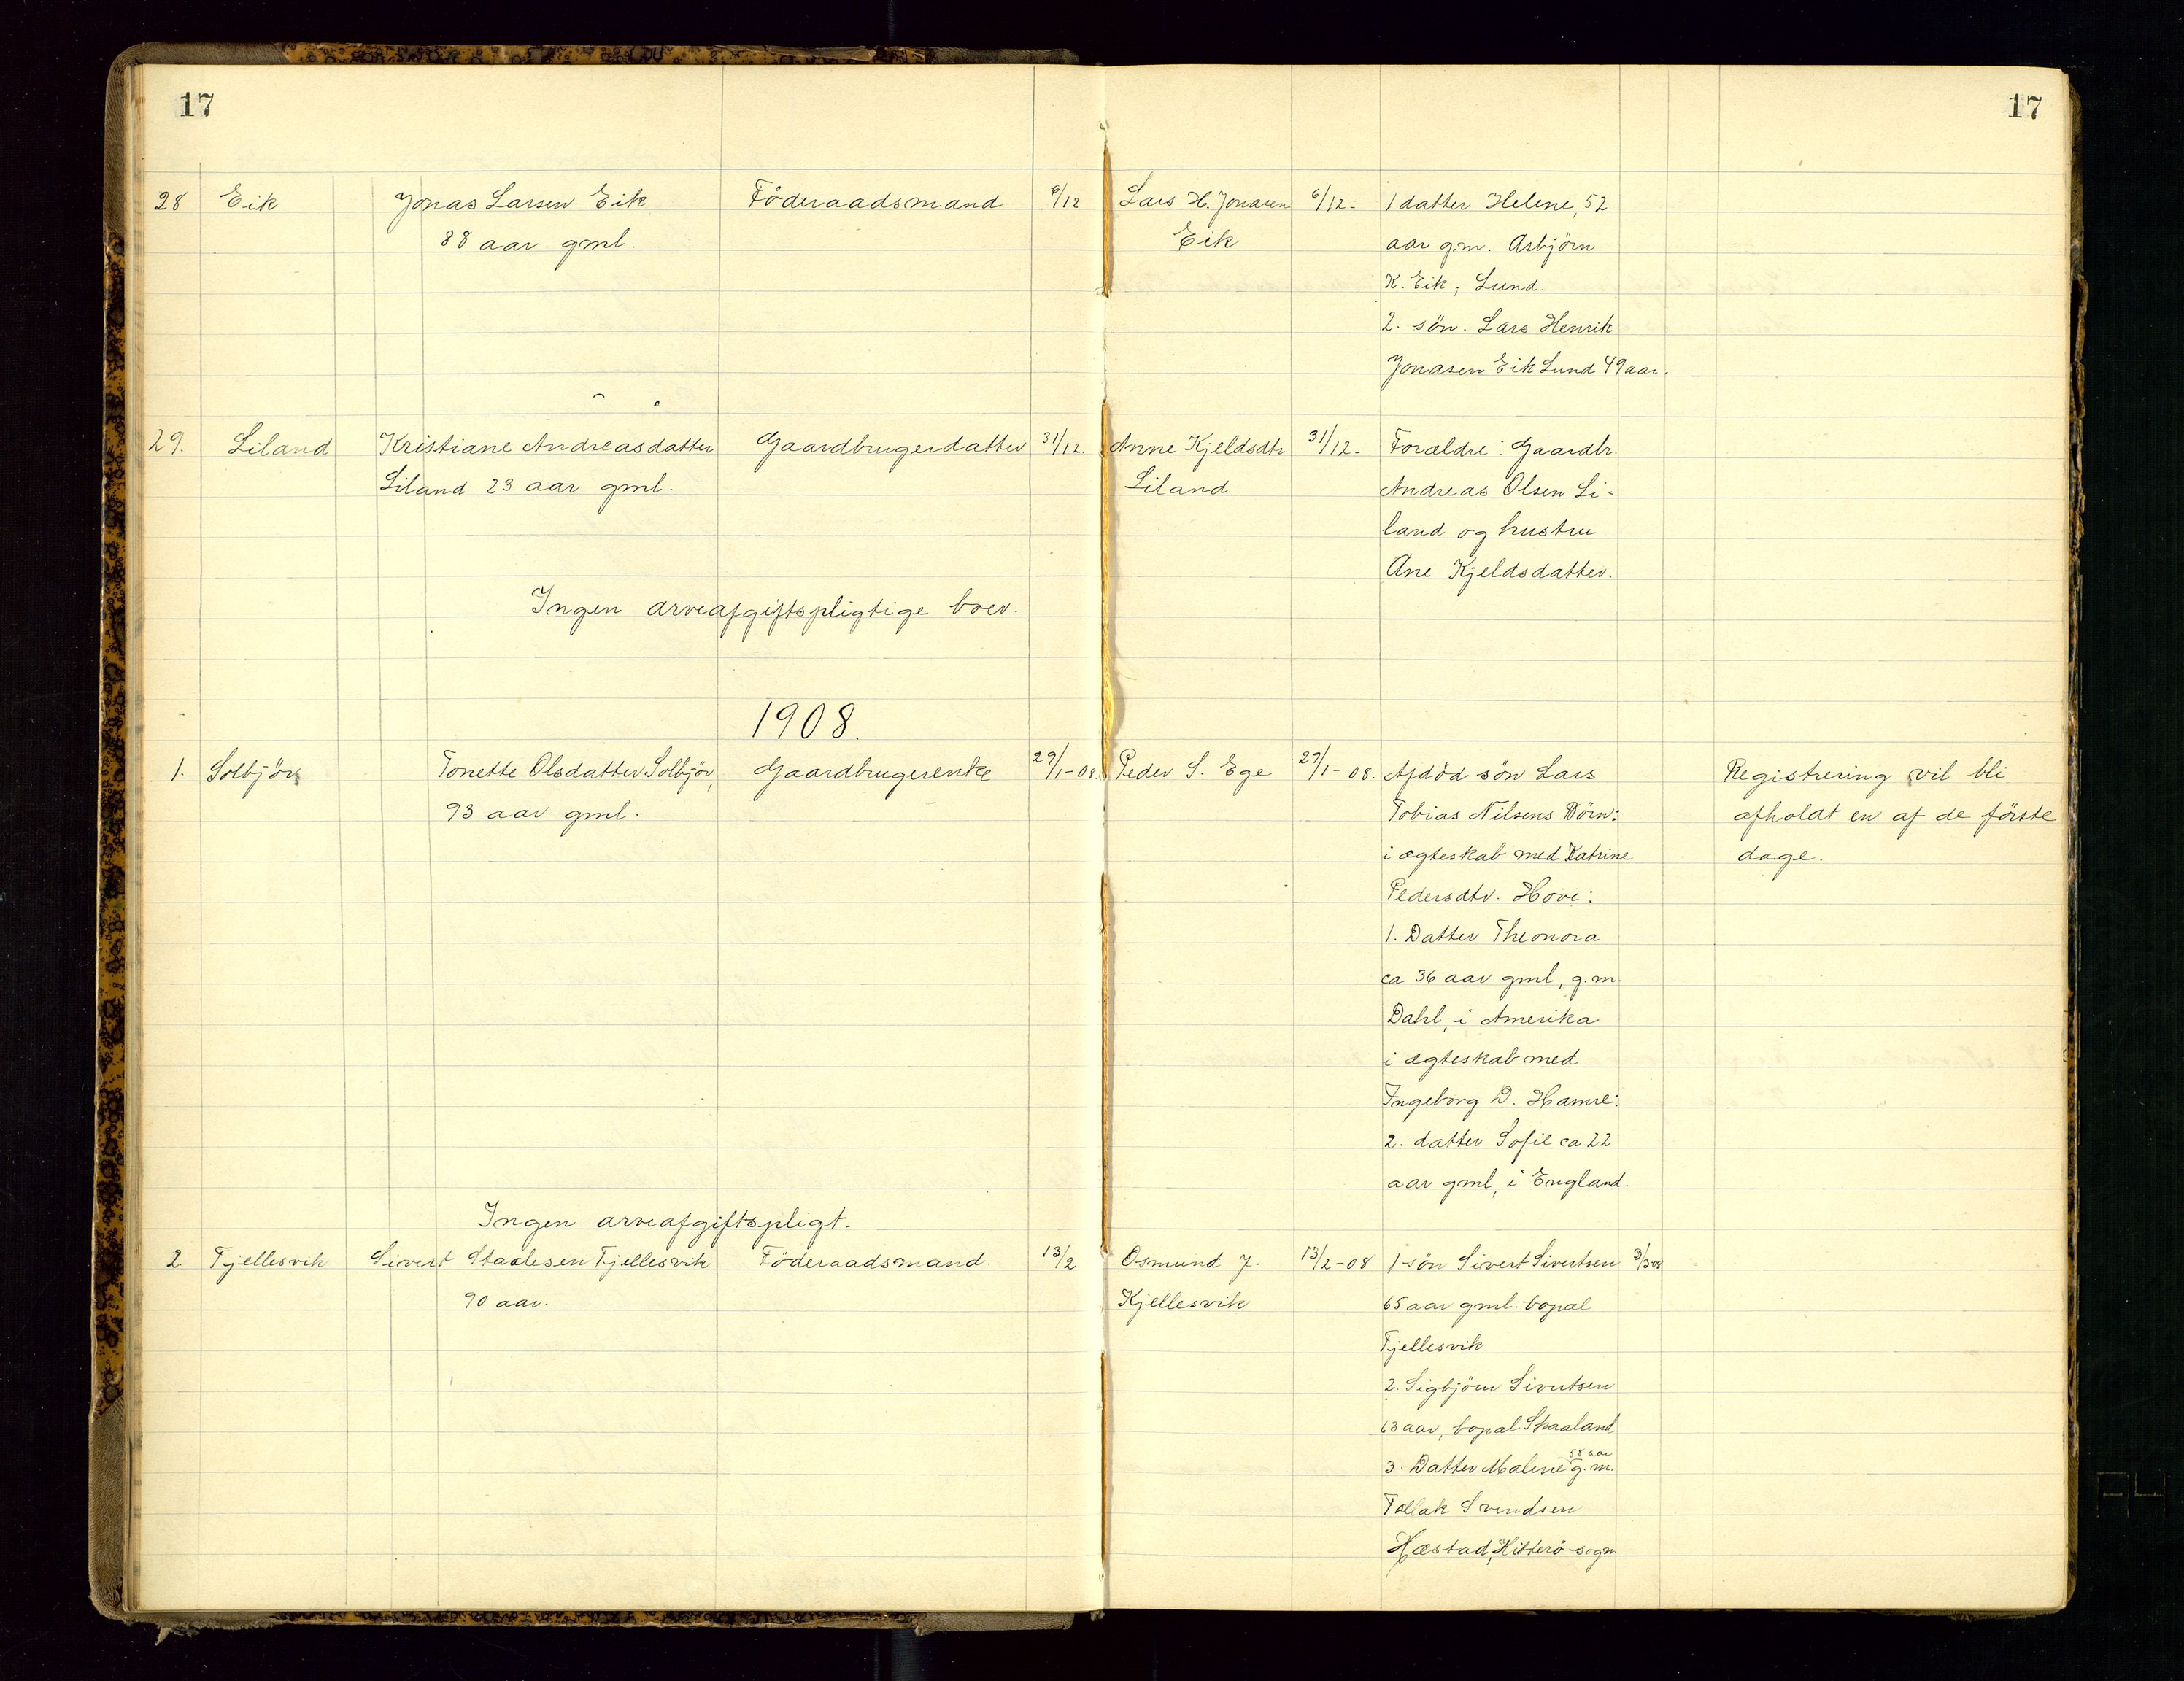 17
17
28 Eik Jonas Larsen Eik Föderaadsmand 6/12 Lars H. Jonasen 6/12- 1 datter Helene, 52
88 aar gml. Eik aar g.m. Asbjörn
K. Eik, Lund.
2. sön. Lars Henrik
Jonasen Eik Lund 49 aar.
29. Liland Kristiane Andreasdatter Gaardbrugerdatter 31/12. Anne Kjeldsdtr. 31/12- Foraldre: Gaardbr.
Liland 23 aar gml. Liland Andreas Olsen Li-
land og hustru
Ane Kjeldsdatter.
Ingen arveafgiftspligtige boer.
1908.
1. Solbjör Tonette Olsdatter Solbjör, Gaardbrugerenke 29/1-08. Peder S. Ege 29/1-08. Afdöd sön Lars Registrering vil bli
93 aar gml. Tobias Nilsens Börn: afholdt en af de förste
i ægteskab med Katrine dage.
Pedersdtr. Hove:
1. Datter Theonora
ca 36 aar gml, g.m.
Dahl, i Amerika
i ægteskab med
Ingeborg D. Hamre:
2. datter Sofie ca 22
aar gml, i England.
Ingen arveafgiftspligt.
2 Tjellesvik Sivert Staalesen Tjellesvik Föderaadsmand. 13/2 Osmund J. 13/2-08 1 sön Sivert Sivertsen 3/3 08
90 aar. Kjellesvik 65 aar gml. bopæl
Tjellesvik
2. Sigbjörn Sivertsen
63 aar, bopæl Skaaland
58 aar
3. Datter Malene g.m.
Tollak Svendsen
Hæstad, Hitterö sogn